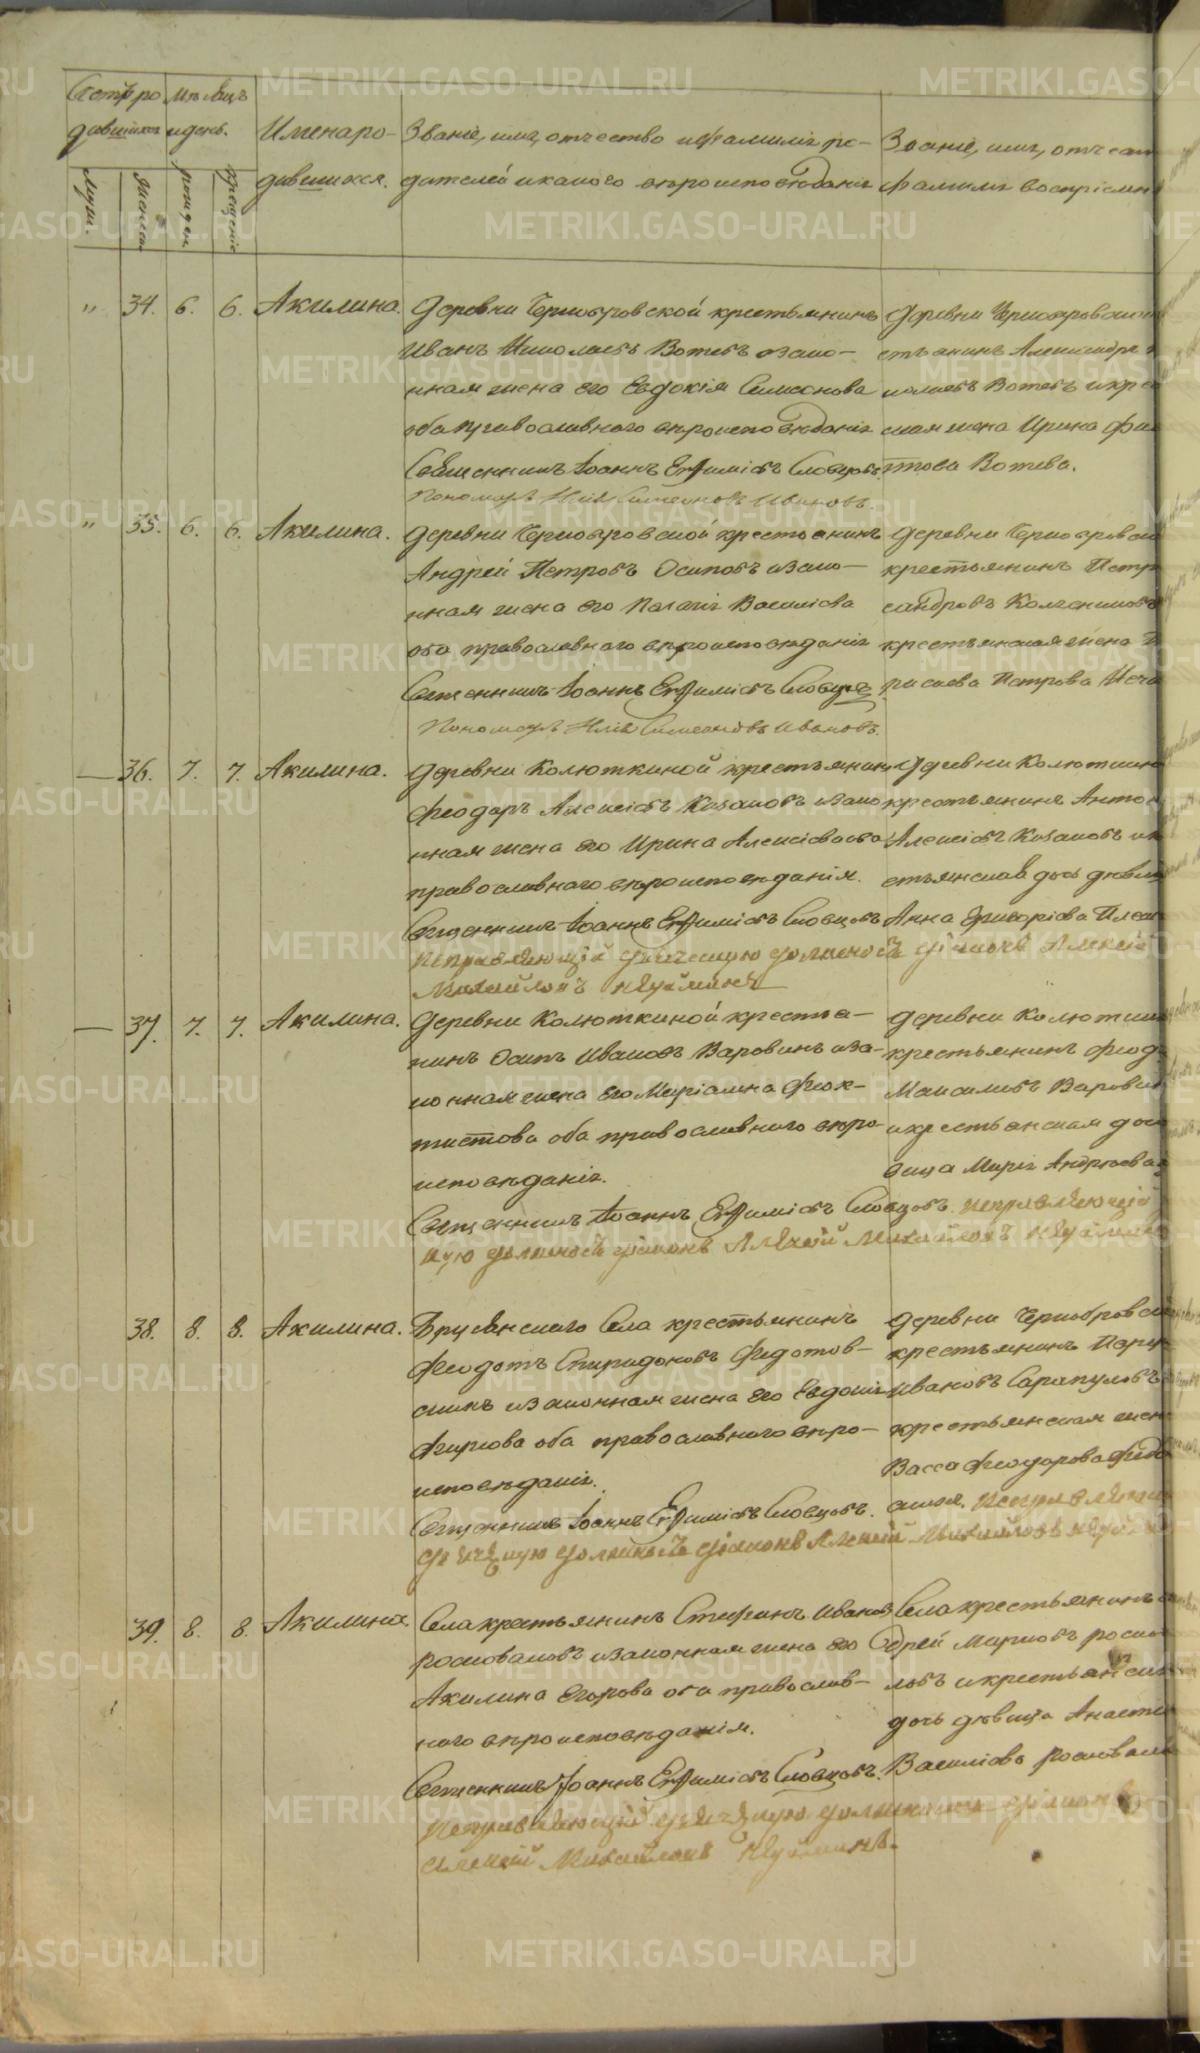 Счетъ ро мѣсяцъ
дившихся и день.
Муж.
Женска
рожден
крещенiе
Имена ро-
дившихся.
Званiе, имя, отчество и фамилiя ро-
дителей и какого вѣроисповѣданiя
Званiе, имя, отчест
фамилiя воспрiемн
" 34. 6. 6. Акилина.
Деревни Чернобровской крестьянинъ
Иванъ Николаевъ Вотевъ и зако-
нная жена его Евдокiя Симеонова
оба православнаго вѣроисповѣданiя
Священникъ Iоаннъ Евѳимiевъ Словцовъ.
Пономарь Илiя Симеоновъ Ивановъ.
Деревни Чернобровской
стьянинъ Александръ
колаевъ Вотевъ и кре
ская жена Ирина Фи
това Вотева.
" 35. 6. 6. Акилина.
Деревни Чернобровской крестьянинъ
Андрей Петровъ Осиповъ и зако-
нная жена его Пелагiя Василiева
оба православнаго вѣроисповѣданiя
Священникъ Iоаннъ Евѳимiевъ Словцовъ.
Пономарь Илiя Симеоновъ Ивановъ.
Деревни Чернобровско
крестьянинъ Петр
сандровъ Колесниковъ
крестьянская жена
расиева Петрова
— 36. 7. 7. Акилина.
Деревни Колюткиной крестьянин
Феодоръ Алексiевъ Казаковъ и зако
нная жена его Ирина Алексiева оба
православнаго вѣроисповѣданiя.
Священникъ Iоаннъ Евѳимiевъ Словцовъ
Исправляющiй дьяческую должность дiаконъ Алексiй
Михайловъ Неуйминъ
Деревни Колюткино
крестьянинъ Анто
Алексiевъ Казаковъ и к
стьянская дочь дѣвиц
Анна Григорiева
— 37. 7. 7. Акилина.
Деревни Колюткиной крестья-
нинъ Осипъ Ивановъ Варовинъ и за-
конная жена его Марiамна Фиок-
тистова оба православнаго вѣро-
исповѣданiя.
Священникъ Iоаннъ Евѳимiевъ Словцовъ. Исправляющiй
кую должность дiаконъ Алексiй Михайловъ Неуймин
Деревни Колютки
крестьянинъ Феод
Максимовъ Варови
и крестьянская доч
вица Марiя Андреева
38. 8. 8. Акилина.
Брусянскаго Села крестьянинъ
Феодотъ Спиридоновъ Федотов-
скихъ и законная жена его Евдокiя
Фирсова оба православнаго вѣро-
исповѣданiя.
Священникъ Iоаннъ Евѳимiевъ Словцовъ.
дьяческую должность дiаконъ Алексiй Михайловъ
Деревни Чернобровск
крестьянинъ
Ивановъ Сарапуловъ
крестьянская жен
Васса Феодорова Федо
ския. Исправляющ
39. 8. 8. Акилина.
Села крестьянинъ Стефанъ Иванов
Росковаловъ и законная жена его
Акилина Егорова оба православ-
наго вѣроисповѣданiя.
Священникъ Iоаннъ Евѳимiевъ Словцовъ.
Исправляющiй дьяческую должность дiаконъ
Алексiй Михайловъ Неуйминъ.
Села крестьянинъ
дрей Марковъ Роско
ловъ и крестьянска
дочь дѣвица Анаста
Василiева Росковало
METRIKI.GASO-URAL.RU